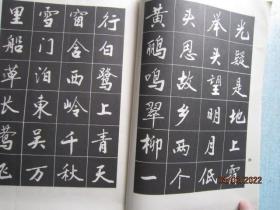 光疑是地上霜
举头望明月低
头思故乡两个
黄鹂鸣翠柳一
行白鹭上青天
窗含西岭千秋
雪门泊东吴万
里船草长莺飞